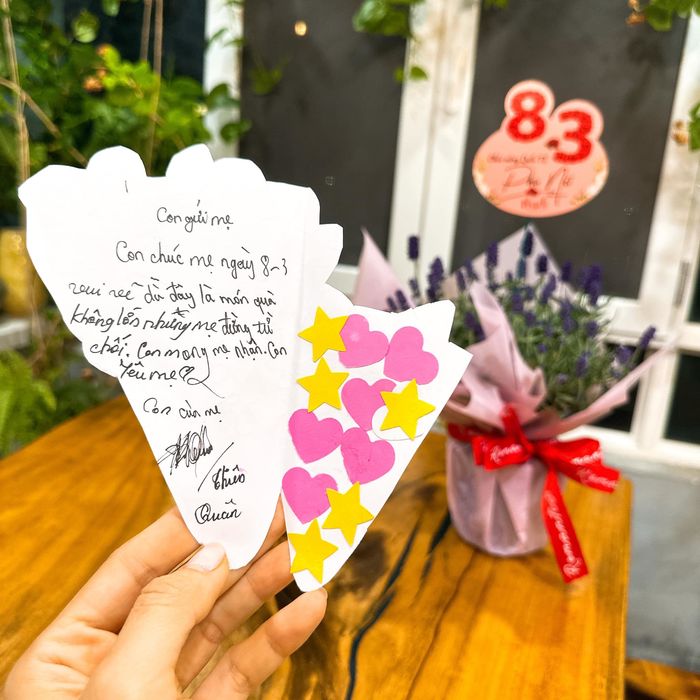 Con gửi mẹ
Con chúc mẹ ngày 8-3
vui vẻ dù đây là món quà
không lớn nhưng mẹ đừng từ
chối. Con mong mẹ nhận. Con
yêu mẹ
Con của mẹ
Thiên
Quân
8.3
Phụ Nữ